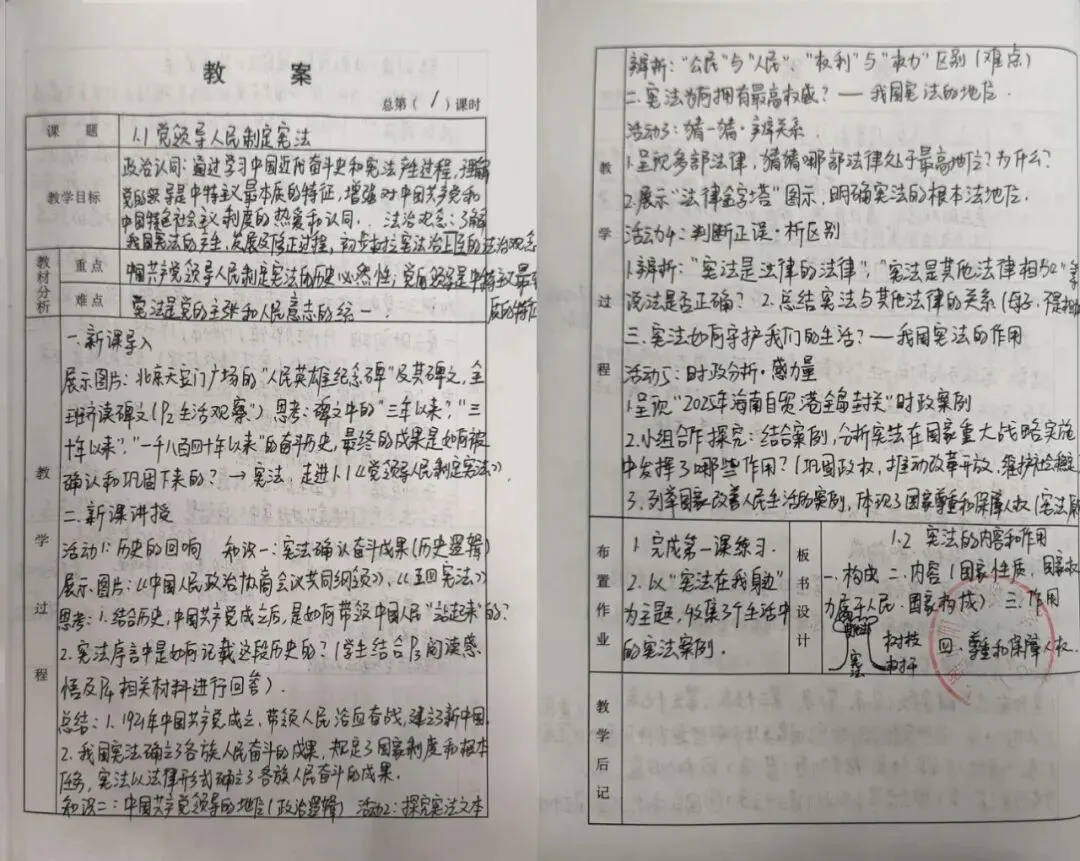 教 案
总第（ 1 ）课时
课 题
1.1 党领导人民制定宪法
教学目标
政治认同：通过学习中国近代奋斗史和宪法产生过程，理解
党的领导是中特主义最本质的特征，增强对中国共产党和
中国特色社会主义制度的热爱和认同． 法治观念：了解
我国宪法的产生，发展及修正过程，初步树立宪法法治上的法治观念
教材分析
重点
中国共产党领导人民制定宪法的历史必然性；党的领导是中特主义最本
质的特征
难点
宪法是党的主张和人民意志的统一．
教 学 过 程
一．新课导入
展示图片：北京天安门广场的“人民英雄纪念碑”及其碑文，全
班齐读碑文（P2生活观察） 思考：碑文中的“三年以来”，“三
十年以来”，“一千八百四十年以来”的奋斗历史，最终的成果是如何被
确认和巩固下来的？→宪法，走进1.1《党领导人民制定宪法》．
二．新课讲授
活动1：历史的回响 知识一：宪法确认奋斗成果（历史逻辑）
展示图片：《中国人民政治协商会议共同纲领》，《五四宪法》
思考：1.结合历史，中国共产党成立后，是如何带领中国人民“站起来”的？
2.宪法序言中是如何记载这段历史的？（学生结合P3阅读感
悟及P4相关材料进行回答）．
总结：1.1921年中国共产党成立，带领人民浴血奋战，建立了新中国．
2.我国宪法确立了各族人民奋斗的成果，规定了国家制度和根本
任务，宪法以法律形式确立了各族人民奋斗的成果．
知识二：中国共产党领导的地位（政治逻辑） 活动2：探究宪法文本
教 学 过 程
辨析：“公民”与“人民”，“权利”与“权力”区别（难点）
二．宪法为何拥有最高权威？—— 我国宪法的地位．
活动3：猜一猜·辨关系．
1.呈现多部法律，猜猜哪部法律处于最高地位？为什么？
2.展示“法律金字塔”图示，明确宪法的根本法地位．
活动4：判断正误·析区别
1.辨析：“宪法是法律的法律”，“宪法是其他法律相加”等
说法是否正确？ 2.总结宪法与其他法律的关系（母子，
三．宪法如何守护我们的生活？——我国宪法的作用
活动5：时政分析·感力量
1.呈现“2025年海南自贸港全岛封关”时政案例
2.小组合作探究：结合案例，分析宪法在国家重大战略实施
中发挥了哪些作用？（巩固政权，推动改革开放，维护社会稳定
3.列举国家改善人民生活的案例，体现了国家尊重和保障人权（宪法
布置作业
1.完成第一课练习．
2.以“宪法在我身边”
为主题，收集3个生活中
的宪法案例．
板书设计
1.2 宪法的内容和作用
一．构成 二．内容（国家性质，国家权
力属于人民，国家构成） 三．作用
宪法 树枝 树干 四．尊重和保障人权．
教学后记